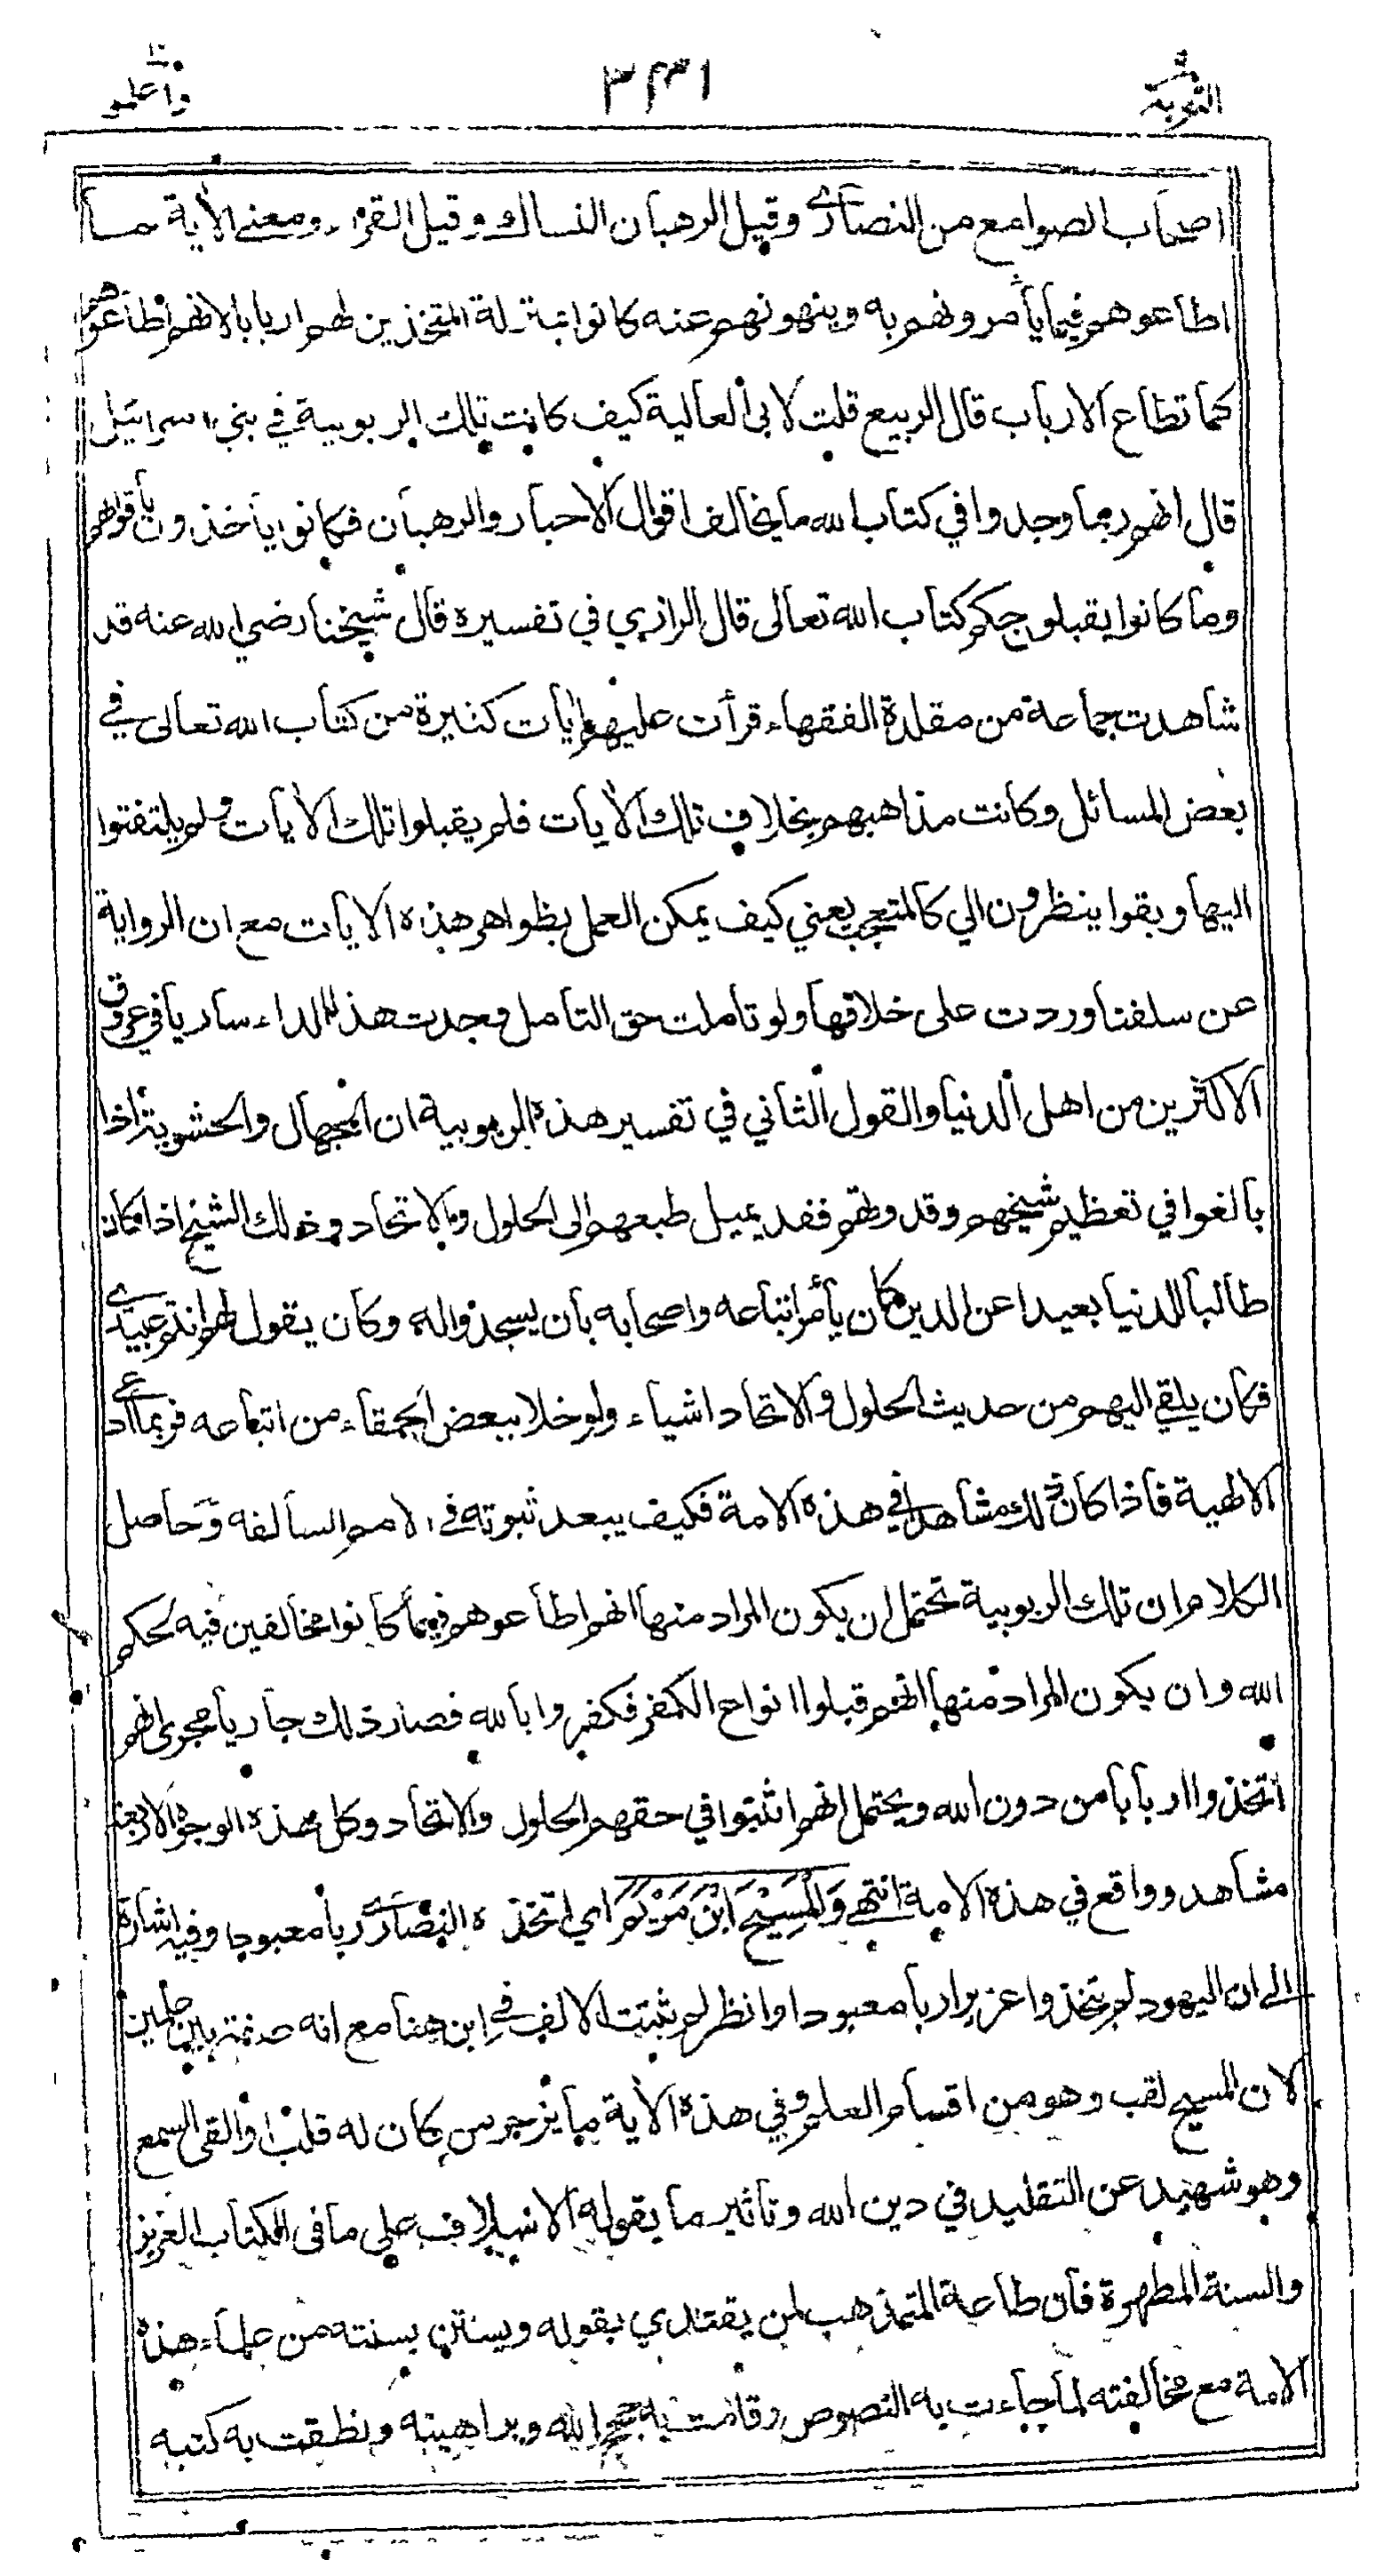 التوبة ٣٣١ واعلموا
اصحاب الصوامع من النصارى وقيل الرهبان النساك وقيل القراء ومعنى الأية لما
اطاعوهم فيما يأمرونهم به وينهونهم عنه كانوا بمنزلة المتخذين لهم اربابا لانهم اطاعوهم
كما تطاع الارباب قال الربيع قلت لابى العالية كيف كانت تلك الربوبية في بني اسرائيل
قال انهم ربما وجدوا في كتاب الله ما يخالف اقوال الاحبار والرهبان فكانوا يأخذون بأقوالهم
وما كانوا يقبلون حكم كتاب الله تعالى قال الرازي في تفسيره قال شيخنا رضي الله عنه قد
شاهدت جماعة من مقلدة الفقهاء قرأت عليهم أيات كثيرة من كتاب الله تعالى في
بعض المسائل وكانت مذاهبهم بخلاف تلك الأيات فلم يقبلوا تلك الأيات ولم يلتفتوا
اليها وبقوا ينظرون الي كالمتعجب يعني كيف يمكن العمل بظواهر هذه الأيات مع ان الرواية
عن سلفنا وردت على خلافها ولو تأملت حق التأمل وجدت هذا الداء ساريا في عروق
الاكثرين من اهل الدنيا والقول الثاني في تفسير هذه الربوبية ان الجهال والحشوية اذا
بالغوا في تعظيم شيخهم وقدوتهم فقد يميل طبعهم الى الحلول والاتحاد وذلك الشيخ اذا كان
طالبا للدنيا بعيدا عن الدين كان يأمر اتباعه واصحابه بأن يسجدوا له وكان يقول لهم انتم عبيدى
فكان يلقي اليهم من حديث الحلول والاتحاد اشياء ولو خلا ببعض الحمقاء من اتباعه فربما ادعى
الالهية فاذا كان ذلك مشاهدا في هذه الامة فكيف يبعد ثبوته في الامم السالفه وحاصل
الكلام ان تلك الربوبية تحتمل ان يكون المراد منها انهم اطاعوهم فيما كانوا مخالفين فيه لحكم
الله وان يكون المراد منها انهم قبلوا انواع الكفر فكفروا بالله فصار ذلك جاريا مجرى انهم
اتخذوا اربابا من دون الله ويحتمل انهم اثبتوا في حقهم الحلول والاتحاد وكل هذه الوجوه الاربعة
مشاهد وواقع في هذه الامة انتهى وَالْمَسِيْحَ ابْنَ مَرْيَمَ اي اتخذه النصارى ربا معبودا وفيه اشارة
الى ان اليهود لم يتخذوا عزيرا ربا معبودا وانظر لم ثبتت الالف في ابن هنا مع انه صفة بين علمين
لان المسيح لقب وهو من اقسام العلم وفي هذه الأية ما يزجر من كان له قلب او القى السمع
وهو شهيد عن التقليد في دين الله وتأثير ما يقوله الاسلاف على ما فى الكتاب العزيز
والسنة المطهرة فان طاعة المتمذهب لمن يقتدي بقوله ويستن بسنته من علماء هذه
الامة مع مخالفته لما جاءت به النصوص وقامت به حجج الله وبراهينه ونطقت به كتبه